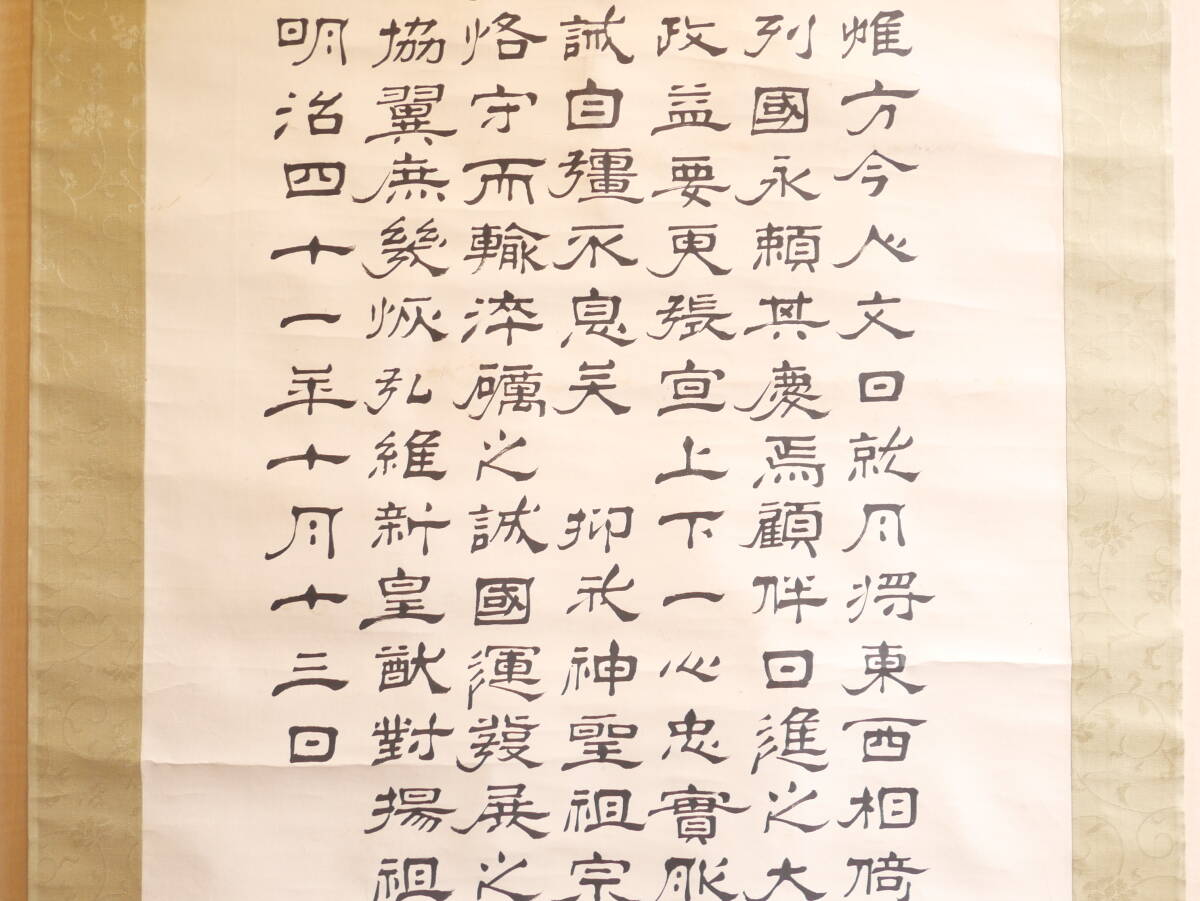 惟方今人文日就月將東西相倚
列國永頼其慶焉顧伴日進之大
政益要更張宜上下一心忠實服
誡自彊不息矣　抑我神聖祖宗
恪守而輸淬礪之誠國運發展之
協翼庶幾恢弘維新皇猷對揚祖
明治四十一年十月十三日